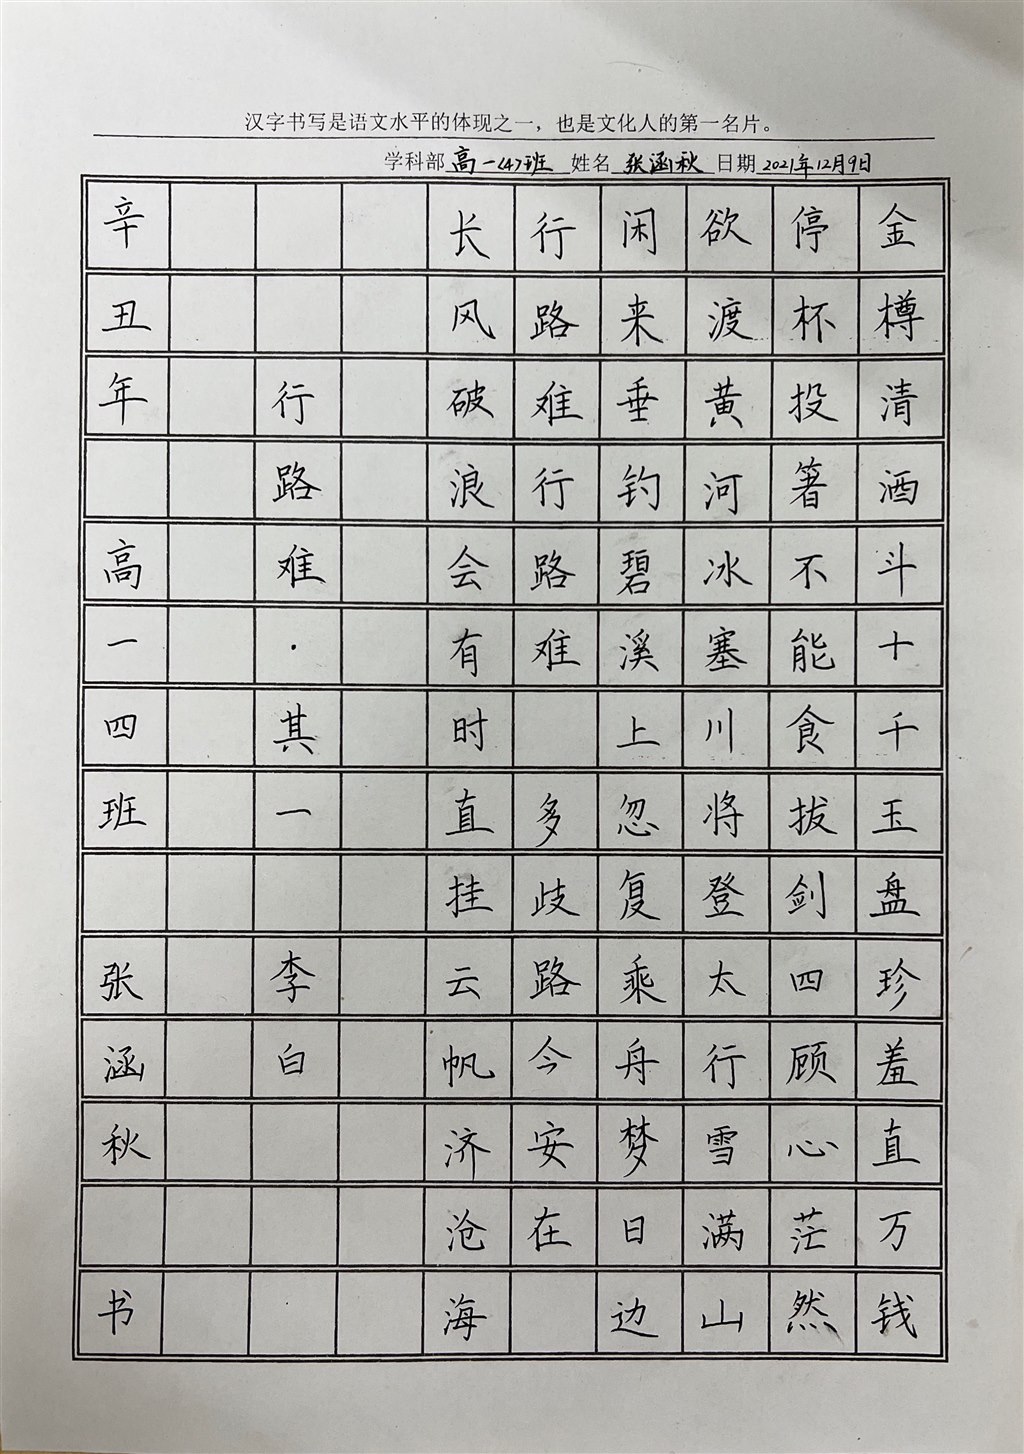 汉字书写是语文水平的体现之一，也是文化人的第一名片。
学科部 高一〈4〉班 姓名 张涵秋 日期 2021年12月9日
金樽清酒斗十千玉盘珍羞直万钱
停杯投箸不能食拔剑四顾心茫然
欲渡黄河冰塞川将登太行雪满山
闲来垂钓碧溪上忽复乘舟梦日边
行路难行路难 多歧路今安在
长风破浪会有时直挂云帆济沧海
行路难·其一 李白
辛丑年 高一四班 张涵秋 书